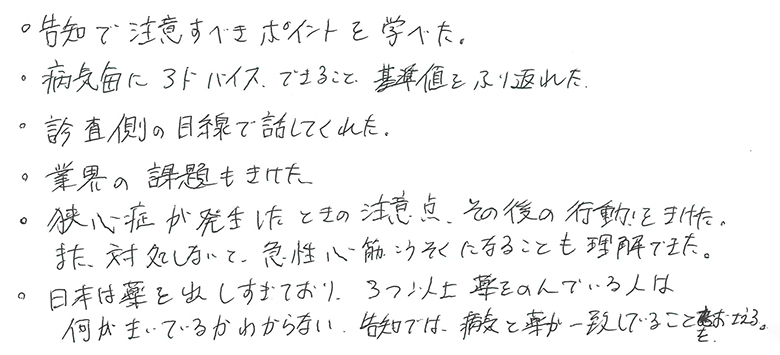 。告知で注意すべきポイントを学べた。
・病気毎にアドバイス、できること、基準値をふり返れた。
。診査側の目線で話してくれた。
。業界の課題もきけた
。狭心症が発生したときの注意点、その後の行動をきけた。
また、対処しないと、急性心筋こうそくになることも理解できた。
。日本は薬を出しすぎており、3つ以上薬をのんでいる人は
何がきいているかわからない。告知では、病気と薬が一致していることをおさえる。